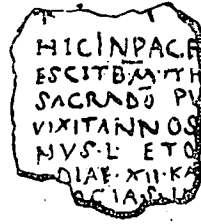 HICINPACE
ESCITBMTH
SACRADO PV
VIXITANNOS
NVS·L· ETO
DIAE·XII·KA
OCIAS